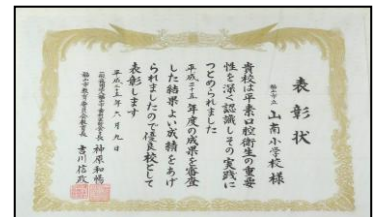 表彰状
福山市立 山南小学校 様
貴校は平素口腔衛生の重要
性を深く認識しその実践に
つとめられました
平成二十五年度の成果を審査
した結果よい成績をあげ
られましたので優良校として
表彰します
平成二十五年六月九日
会長 神原和暢
福山市教育委員会教育長 吉川信政